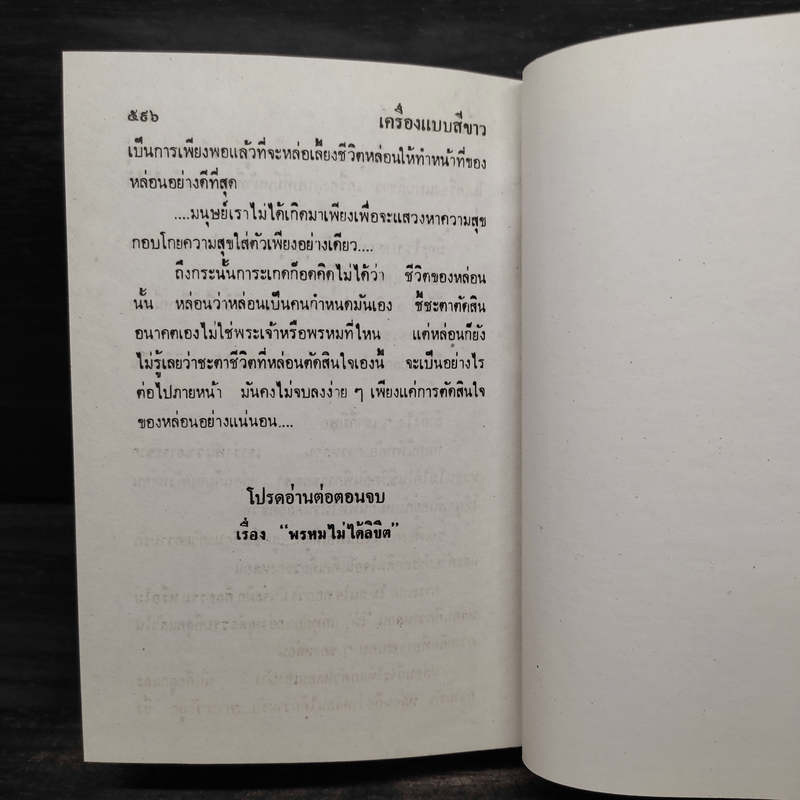 ๕๙๖
เครื่องแบบสีขาว
เป็นการเพียงพอแล้วที่จะหล่อเลี้ยงชีวิตหล่อนให้ทำหน้าที่ของ
หล่อนอย่างดีที่สุด
....มนุษย์เราไม่ได้เกิดมาเพียงเพื่อจะแสวงหาความสุข
กอบโกยความสุขใส่ตัวเพียงอย่างเดียว....
ถึงกระนั้นการะเกดก็อดคิดไม่ได้ว่า ชีวิตของหล่อน
นั้น หล่อนว่าหล่อนเป็นคนกำหนดมันเอง ชี้ชะตาตัดสิน
อนาคตเองไม่ใช่พระเจ้าหรือพรหมที่ไหน แต่หล่อนก็ยัง
ไม่รู้เลยว่าชะตาชีวิตที่หล่อนตัดสินใจเองนี้ จะเป็นอย่างไร
ต่อไปภายหน้า มันคงไม่จบลงง่าย ๆ เพียงแค่การตัดสินใจ
ของหล่อนอย่างแน่นอน....
โปรดอ่านต่อตอนจบ
เรื่อง "พรหมไม่ได้ลิขิต"